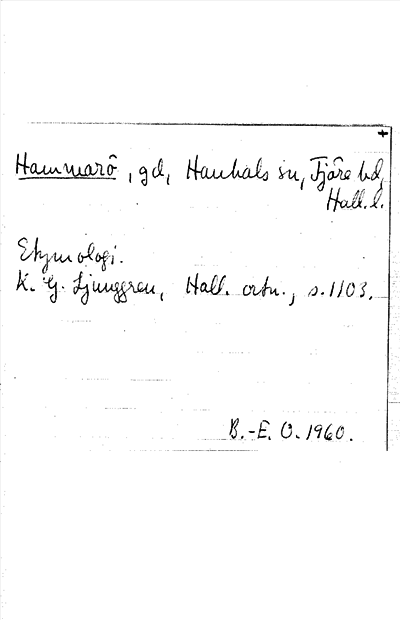 +
Hammarö, gd, Hanhals sn, Fjäre hd,
Hall. l.
Etymologi.
K. G. Ljunggren, Hall. ortn., s. 1103.
B.-E. O. 1960.